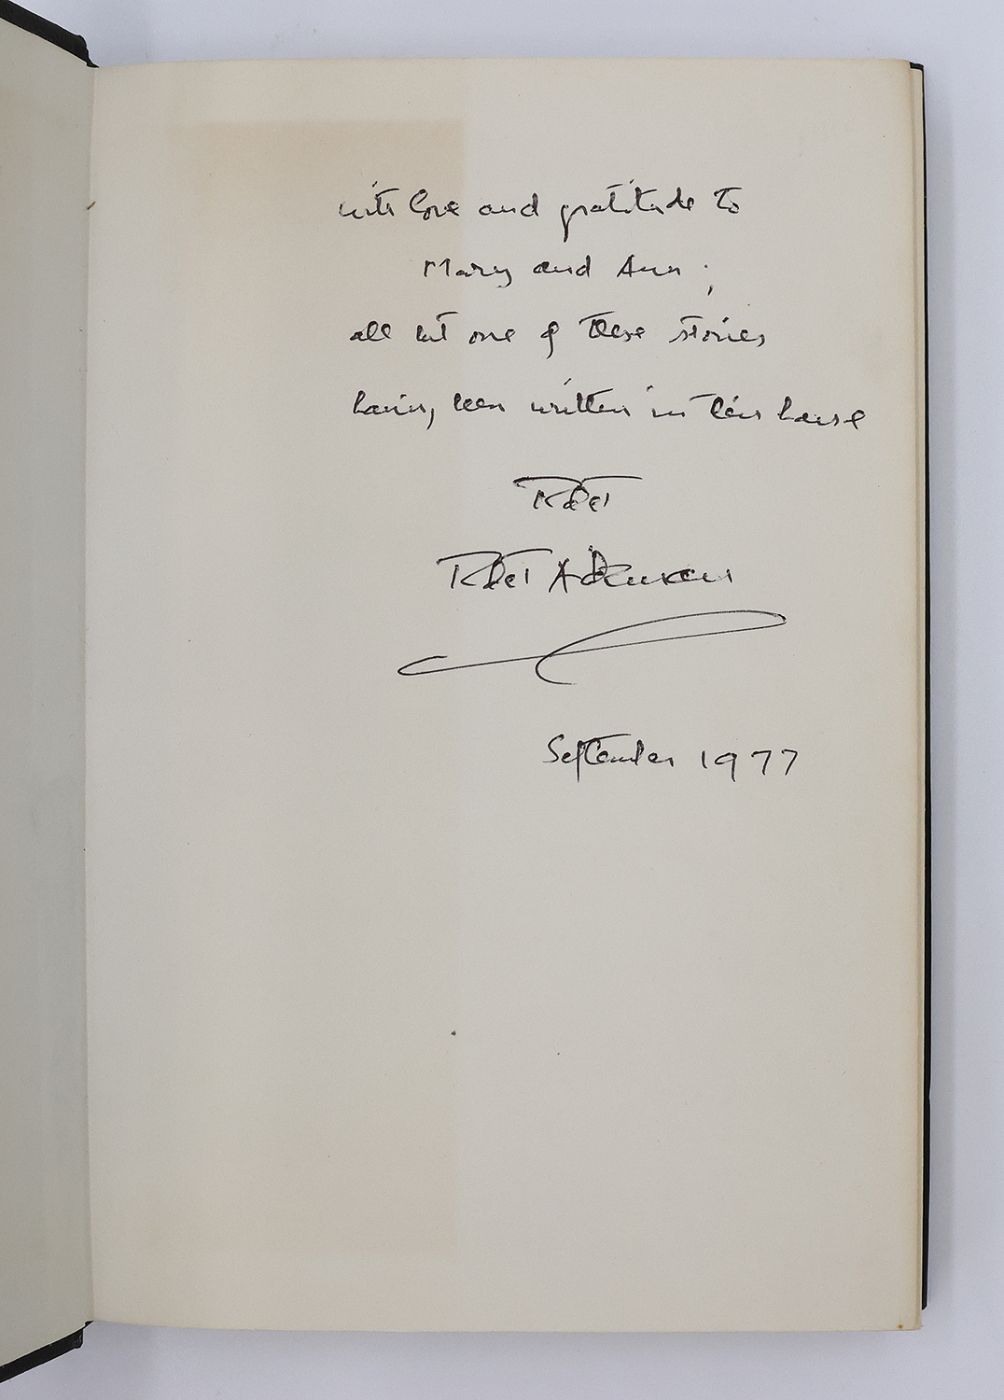 with love and gratitude to
Mary and Ann;
all but one of these stories
having been written in their house
Robert
Robert Aickman
September 1977